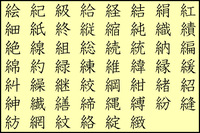 絵紀級給経結絹紅
細紙終縦縮純織績
絶線組総続統納編
綿約緑練維緯縁緩
糾繰継絞綱紺緒紹
紳繊繕締縄縛紛縫
紡網紋絡綻緻